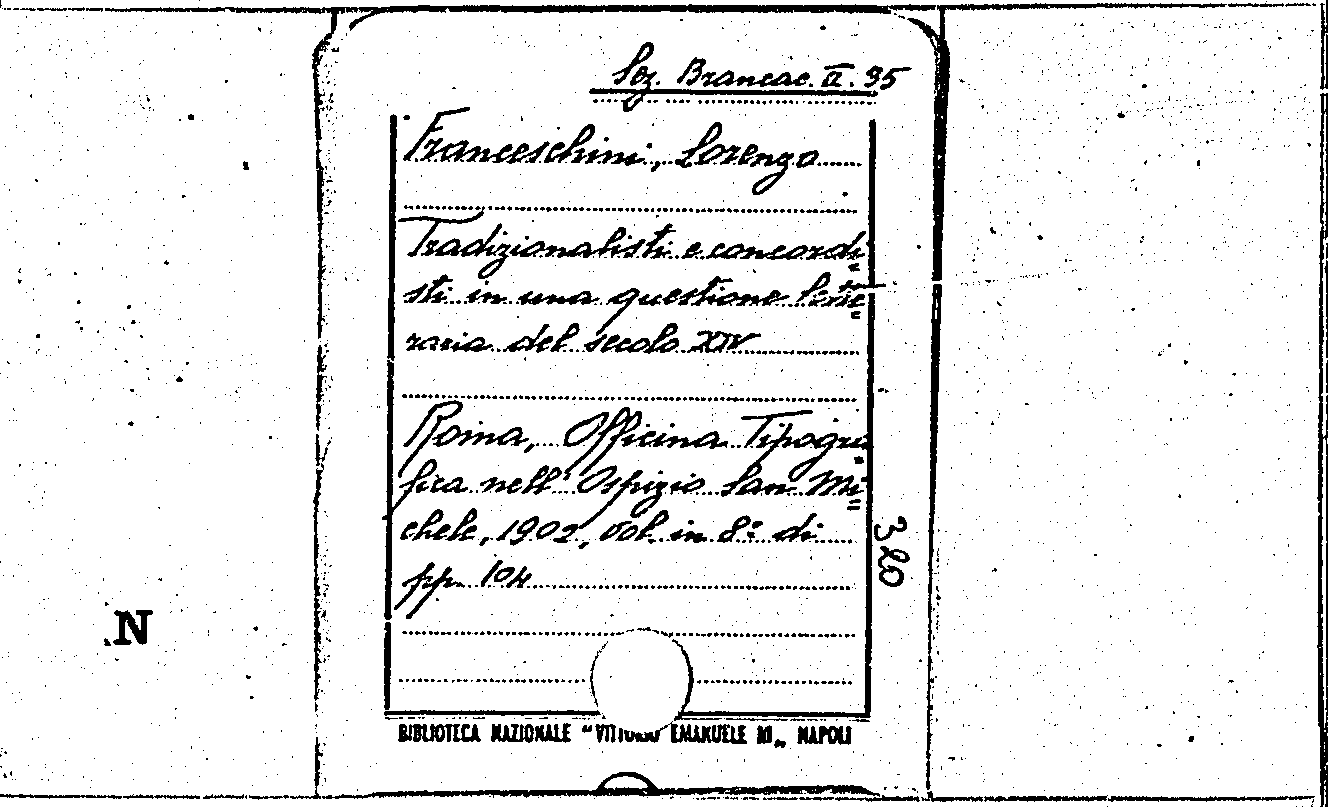 Sez. Brancac. II. 35
Franceschini, Lorenzo
Tradizionalisti e concordi=
sti in una questione lette=
raria del secolo XIV
Roma, Officina Tipogra=
fica nell' Ospizio San Mi=
chele, 1902, vol. in 8° di
pp. 104
320
N
BIBLIOTECA NAZIONALE "VITTORIO EMANUELE III„ NAPOLI